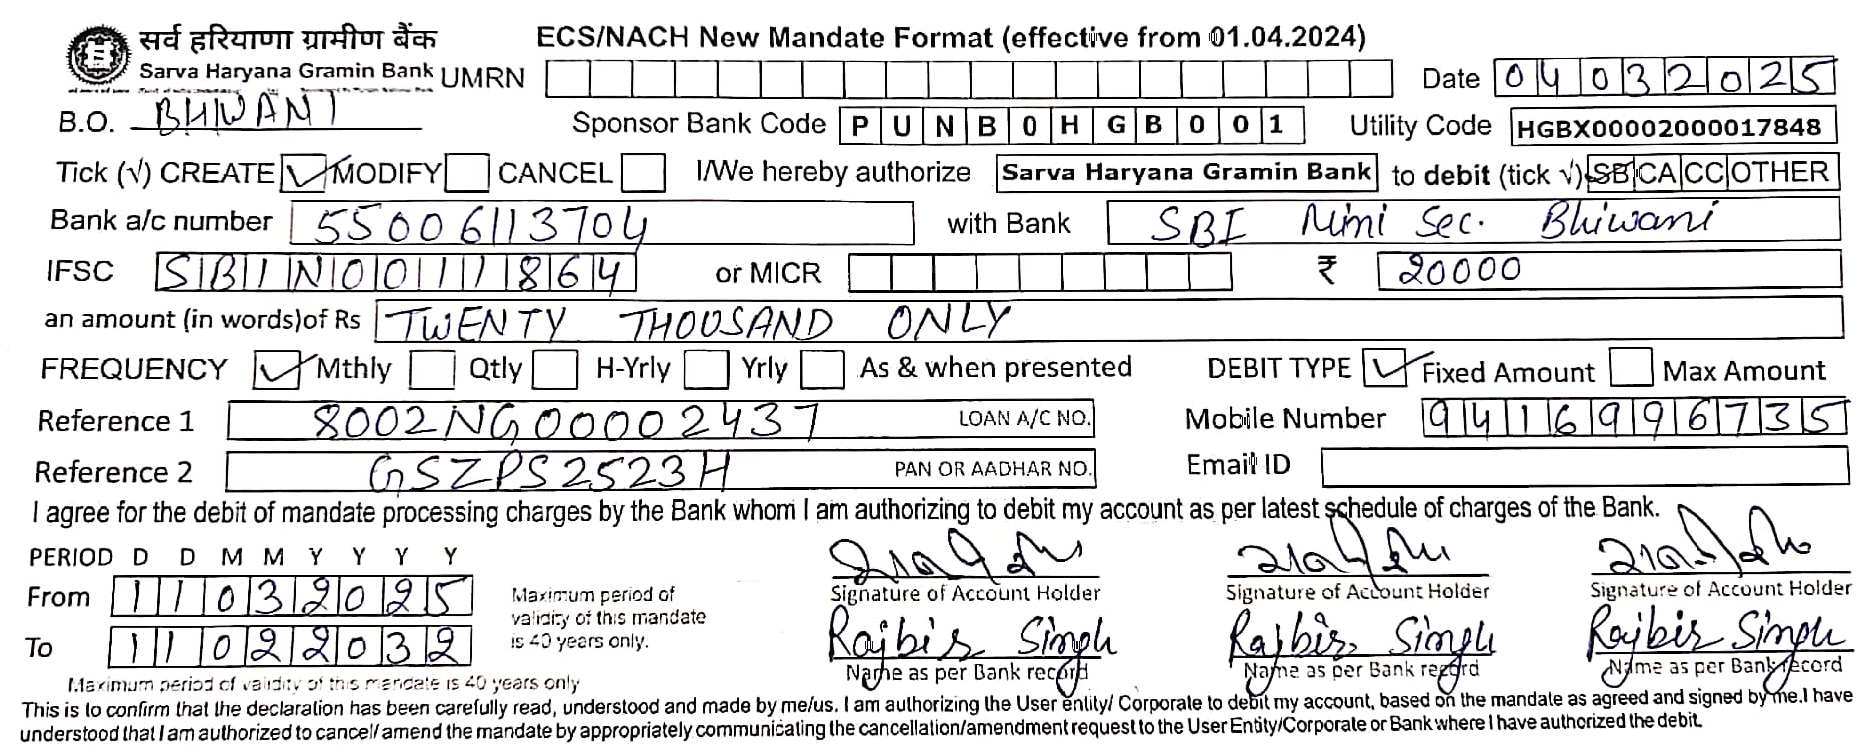 सर्व हरियाणा ग्रामीण बैंक ECS/NACH New Mandate Format (effective from 01.04.2024)
Sarva Haryana Gramin Bank UMRN Date 04032025
B.O. BHIWANI Sponsor Bank Code PUNB0HGB001 Utility Code HGBX00002000017848
Tick (√) CREATE ✓ MODIFY CANCEL I/We hereby authorize Sarva Haryana Gramin Bank to debit (tick √) SB CA CC OTHER
Bank a/c number 55006113704 with Bank SBI Mini Sec. Bhiwani
IFSC SBIN0011864 or MICR ₹ 20000
an amount (in words)of Rs TWENTY THOUSAND ONLY
FREQUENCY ✓ Mthly Qtly H-Yrly Yrly As & when presented DEBIT TYPE ✓ Fixed Amount Max Amount
Reference 1 8002NG00002437 LOAN A/C NO. Mobile Number 9416996735
Reference 2 GSZPS2523H PAN OR AADHAR NO. Email ID
I agree for the debit of mandate processing charges by the Bank whom I am authorizing to debit my account as per latest schedule of charges of the Bank.
PERIOD D D M M Y Y Y Y
From 11032025 Maximum period of validity of this mandate is 40 years only. Signature of Account Holder Signature of Account Holder Signature of Account Holder
To 11022032 Rajbir Singh Rajbir Singh Rajbir Singh
Name as per Bank record Name as per Bank record Name as per Bank record
Maximum period of validity of this mandate is 40 years only
This is to confirm that the declaration has been carefully read, understood and made by me/us. I am authorizing the User entity/ Corporate to debit my account, based on the mandate as agreed and signed by me.I have
understood that I am authorized to cancel/ amend the mandate by appropriately communicating the cancellation/amendment request to the User Entity/Corporate or Bank where I have authorized the debit.